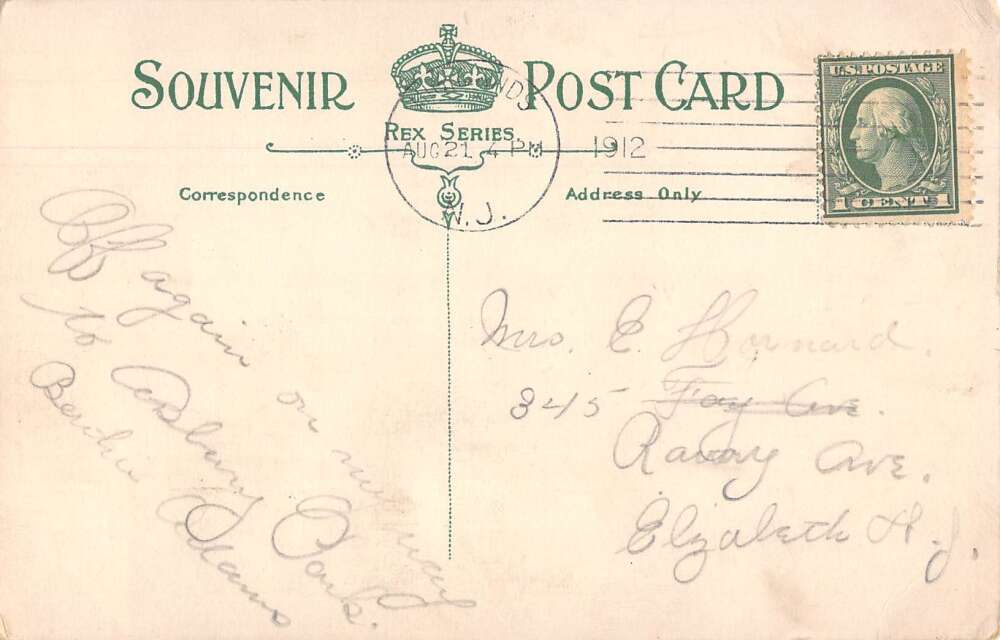 SOUVENIR POST CARD
REX SERIES.
AUG 21 4 PM 1912
N.J.
U.S. POSTAGE
1 CENT 1
Correspondence
Address Only
Off again on my way
to Asbury Park.
Adams
Mrs. E.
345 Foy Ave.
Ave.
Elizabeth N.J.